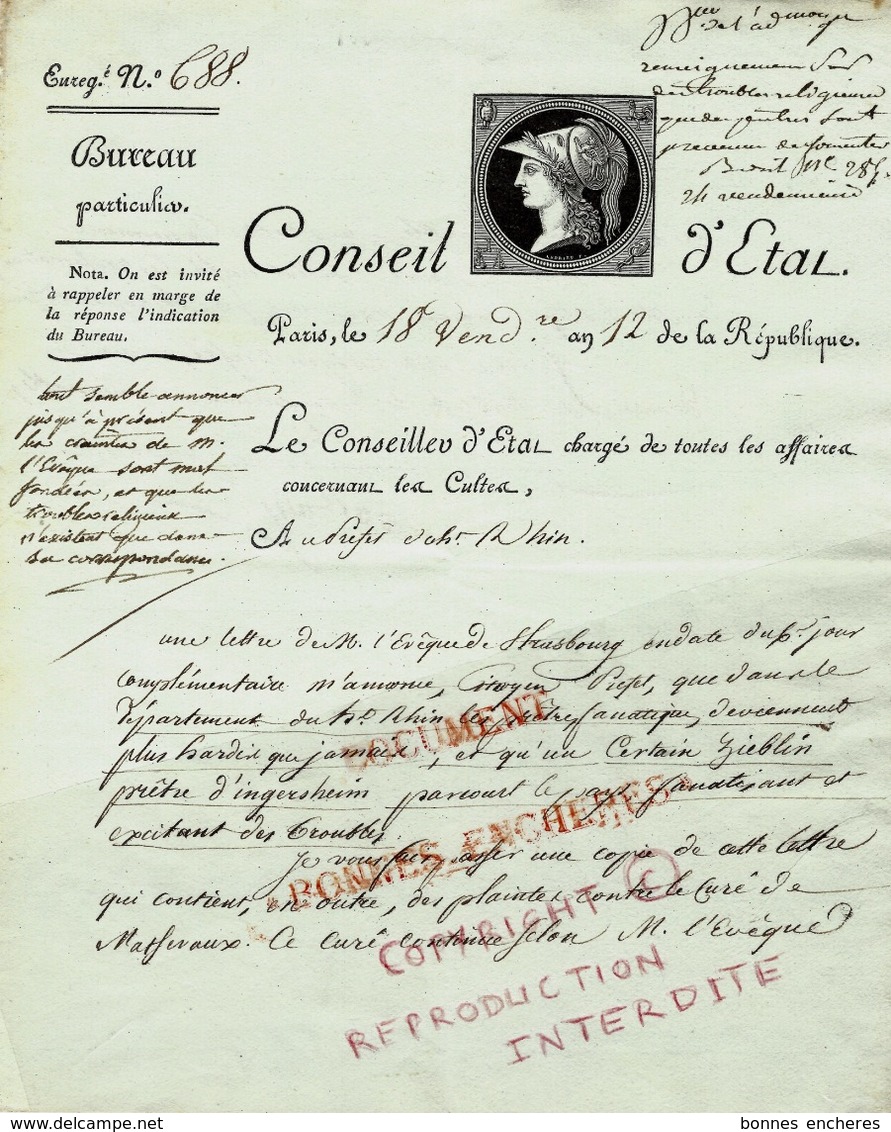 Enreg.é N.o 688.
Bureau
particulier.
Nota. On est invité
à rappeler en marge de
la réponse l'indication
du Bureau.
renseignemens sur
des troubles religieux
que des prêtres sont
prévenus de fomenter
24 vendemiaire
Conseil d'Etat.
Paris, le 18 Vend.re an 12 de la République.
tout semble annoncer
jusqu'à présent que
les craintes de M.
l'Evêque sont mal
fondées, et que les
troubles religieux
n'existent que dans
sa correspondance.
Le Conseiller d'Etat chargé de toutes les affaires
concernant les Cultes,
Au Préfet du ht. Rhin.
une lettre de M. l'Evêque de Strasbourg en date du 6e. jour
complémentaire m'annonce, Citoyen Préfet, que dans le
département du ht. Rhin les prêtres fanatiques deviennent
plus hardis que jamais, et qu'un Certain Zieblin
prêtre d'ingersheim parcourt le pays fanatisant et
excitant des troubles.
Je vous fais passer une copie de cette lettre
qui contient, en outre, des plaintes contre le Curé de
Massevaux. Ce Curé continue selon M. l'Evêque
DOCUMENT
BONNES ENCHERES
COPYRIGHT ©
REPRODUCTION
INTERDITE
bonnes encheres